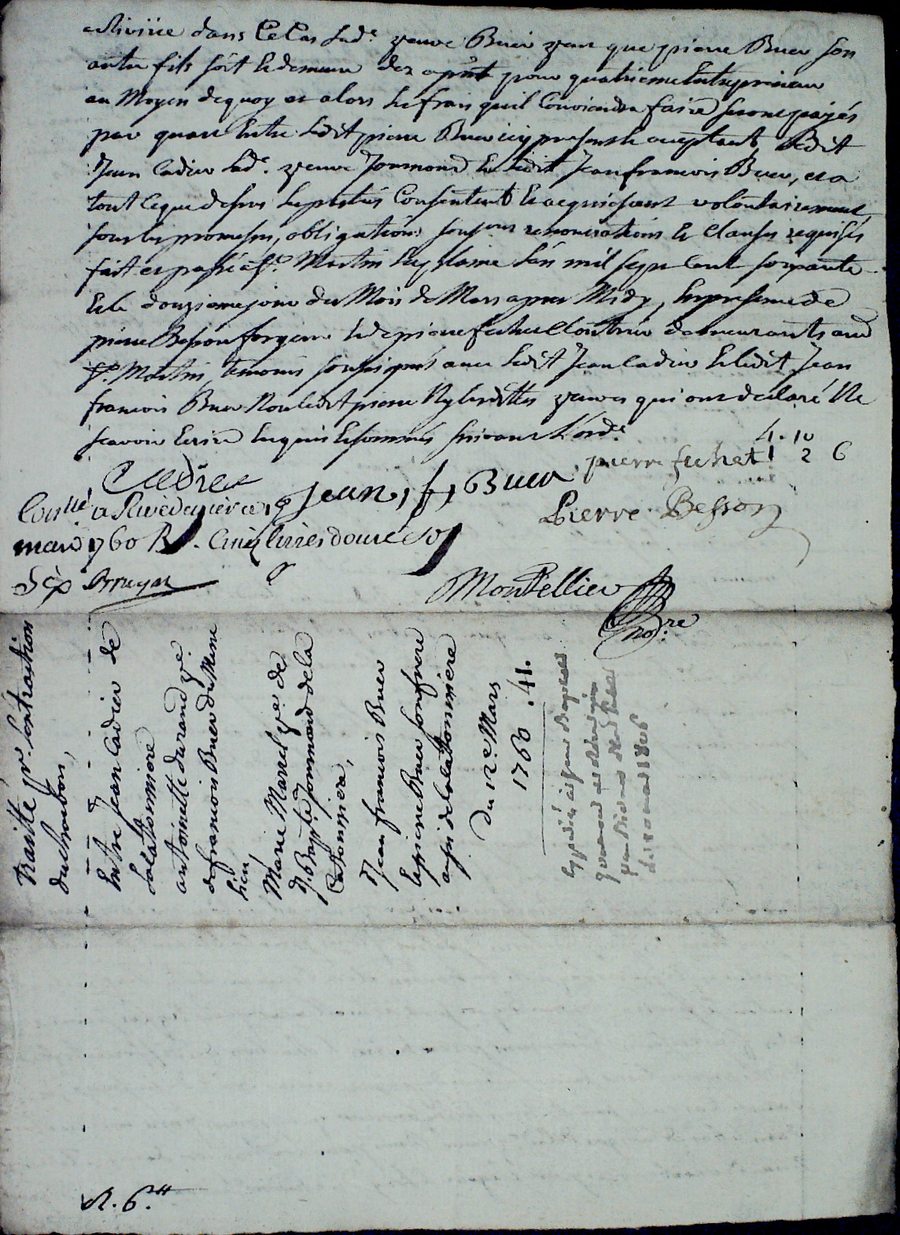 dans le Cas lad.e veuve Buer veut que pierre Buer son
autre fils soit et demeure des apñt pour quatrieme Entrepreneur
au Moyen dequoy et alors les frais quil Conviendra faire seront payés
par quart Entre ledit pierre Buer icy present et acceptant, ledit
Jean Cadier lad.e veuve Jommond et ledit Jean francois Buer, et a
tout ceque dessus les parties Consentent et acquiessent volontairement,
sous les promesses, obligations renonciations et Clauses requises
fait et passé a S.t Martin La plaine L'an mil sept Cent soixante
Et le douzieme jour du Mois de Mars apres Midy, En presence de
pierre Besson forgeur et de pierre fichet Cloutrier demeurants aud
S.t Martin, temoins soussignés avec ledit Jean Cadier et ledit Jean
francois Buer Non ledit pierre Ny lesdittes veuves qui ont declaré Ne
scavoir Ecrire Enquis et sommés suivant l'ord.e
Cadier Jean, f, Buer pierre fichet
4. 10
1 2 6
Pierre Besson
Con.llé a Rivedegier ce 19
mars 1760 R. Cinq livres douze s
Montellier
No.re
traitté p.r L'extraction
du charbon,
Entre Jean Cadier de
La Catonniere
antoinette durand v.e
de francois Buer du Meme
lieu
Marie Marel v.e de
J. Bap.te Jommond de la
Catonniere,
Jean francois Buer
Et pierre Buer son frere
aussi de la Catonniere
Du 12.e Mars
1760 . 41.
Expedié
du 10 mai 1806
R. 6.tt